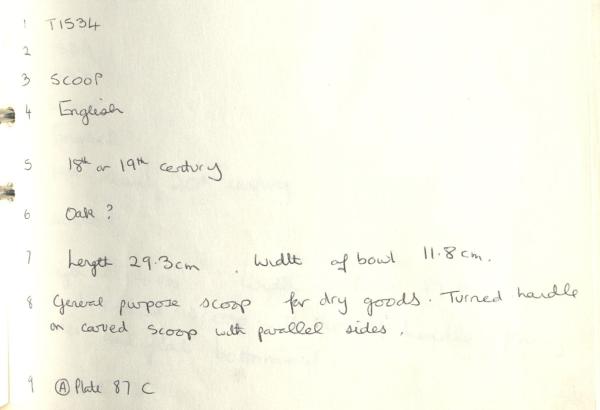 1 T1534
2
3 SCOOP
4 English
5 18th or 19th century
6 Oak ?
7 Length 29.3cm . Width of bowl 11.8cm.
8 General purpose scoop for dry goods. Turned handle
on carved scoop with parallel sides.
9 Ⓐ Plate 87 C